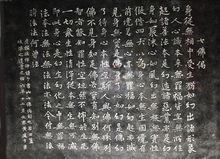 七佛偈
身從無相中受生猶如幻出諸形象
幻人心識本來無罪福皆空無所住
起諸善法本是幻造諸惡業亦是幻
身如聚沫心如風幻出無根無實性
假借四大以為身心本無生因境有
前境若無心亦無罪福如幻起亦滅
見身無實是佛身了心如幻是佛幻
了得身心本性空斯人與佛何殊別
佛不見身知是佛若實有知別無佛
智者能知罪性空坦然不怖於生死
一切眾生性清淨從本無生無可滅
即此身心是幻生幻化之中無罪福
法本法無法無法法亦法今付無法
時法法何曾法